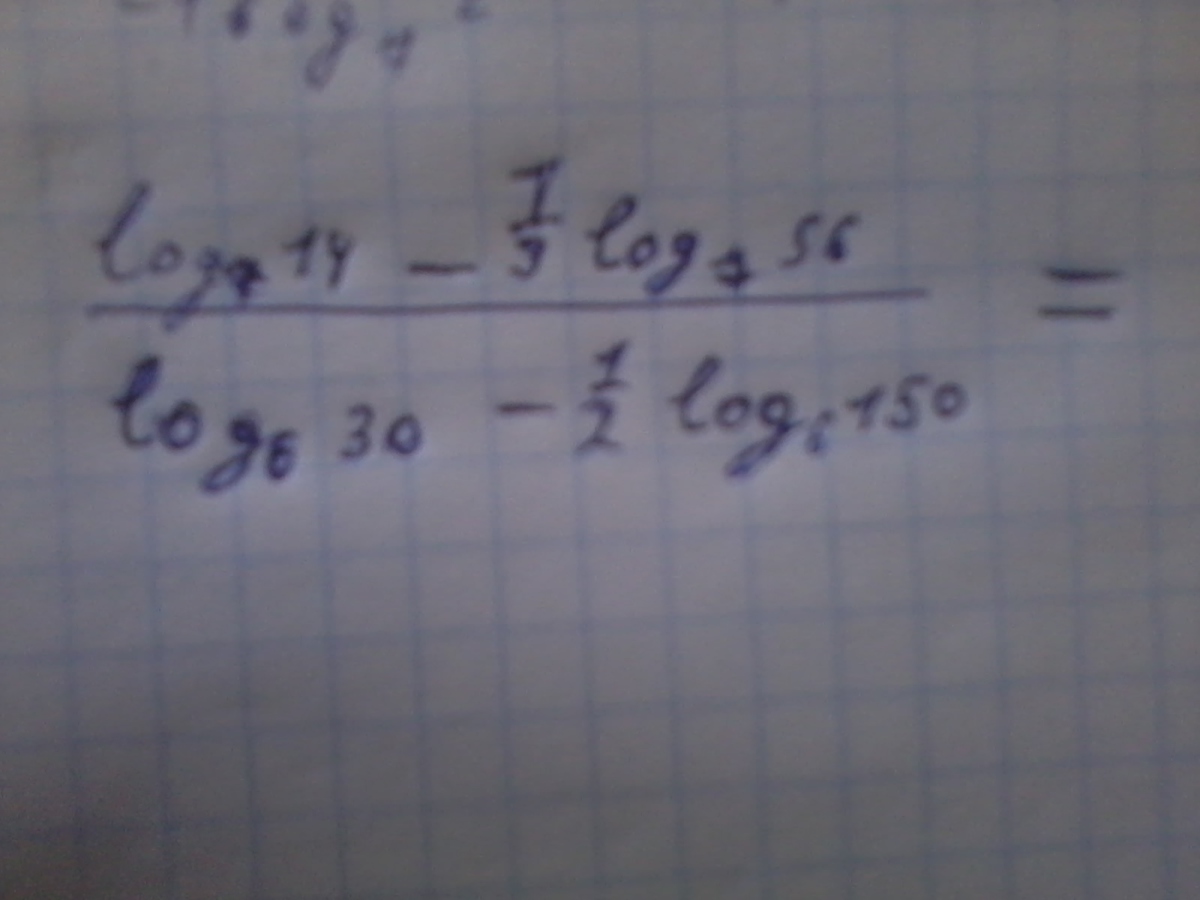 log₇ 14 − 1/3 log₇ 56 =
log₆ 30 − 1/2 log₆ 150